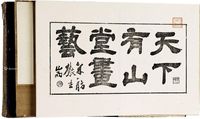 天下
有山
堂畫
藝